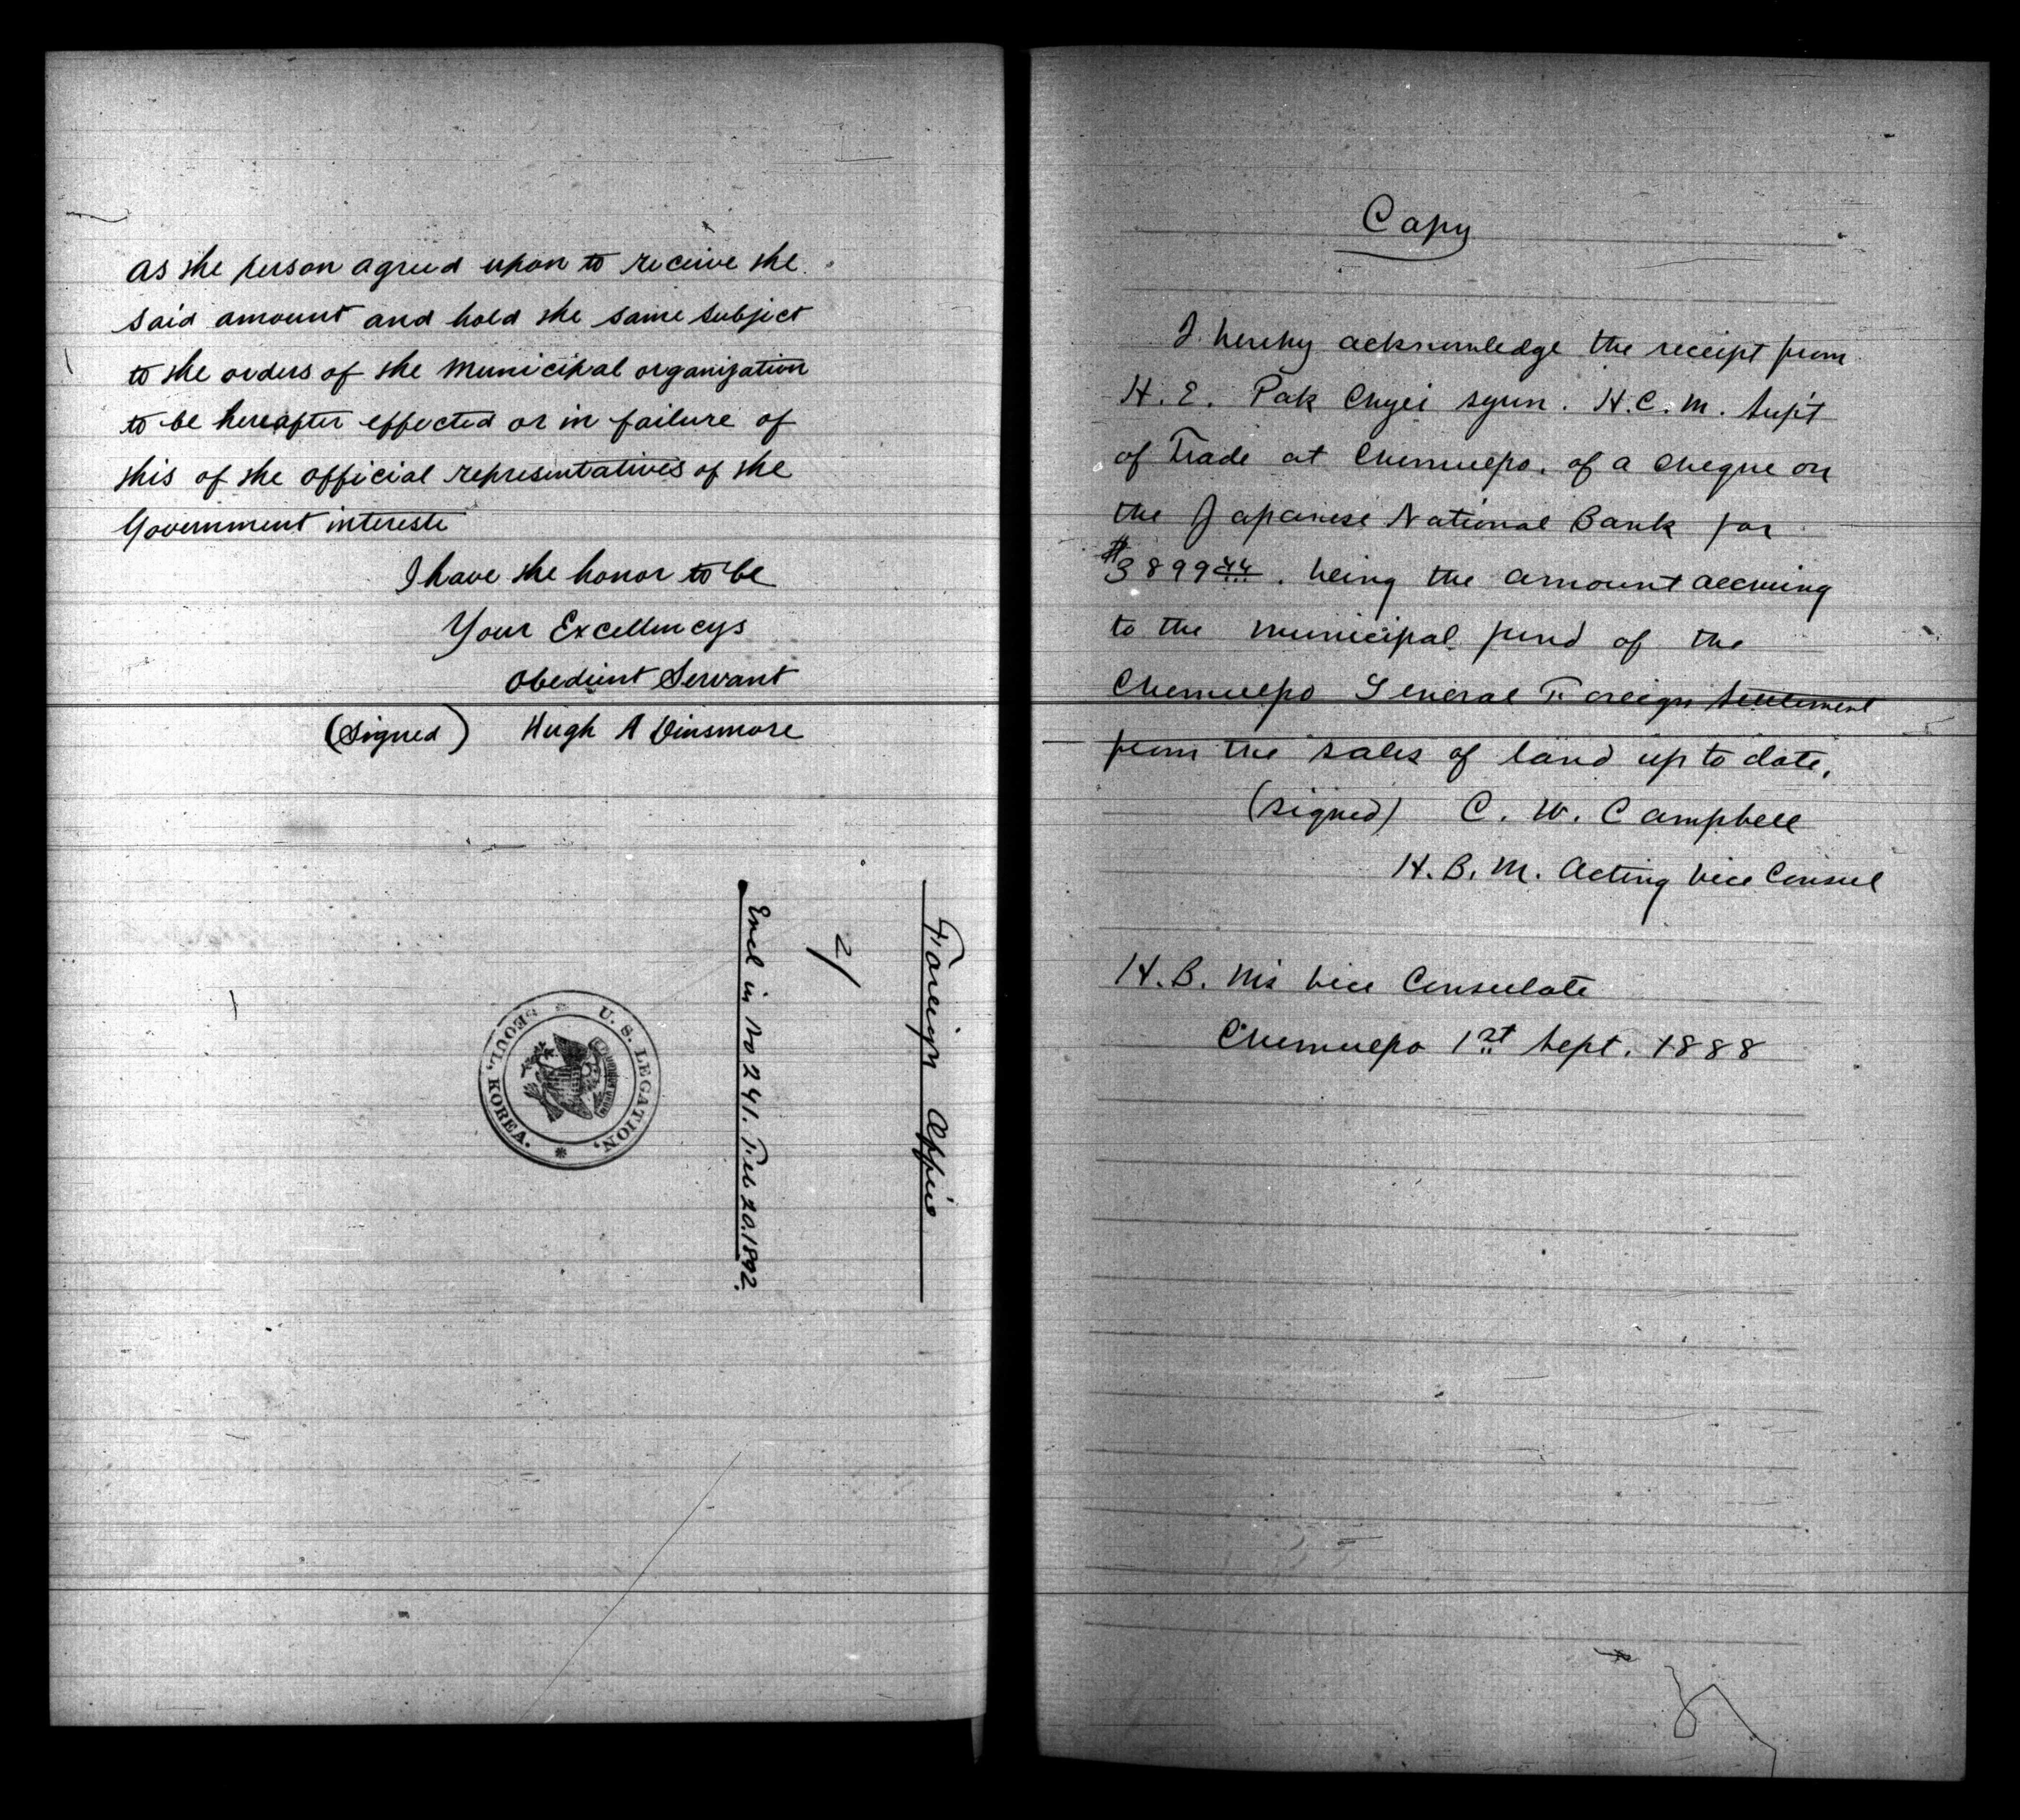 as the person agreed upon to receive the
said amount and hold the same subject
to the orders of the Municipal organization
to be hereafter effected or in failure of
this of the official representatives of the
Government interests
I have the honor to be
Your Excellencys
Obedient Servant
(Signed) Hugh A Dinsmore
Foreign Office
2/
Encl in No 241. Feb 20. 1892.
U. S. LEGATION,
SEOUL, KOREA.
Copy
I hereby acknowledge the receipt from
H. E. Pak Chyei syun. H. C. M. Sup't
of Trade at Chemulpo. of a cheque on
the Japanese National Bank for
$3899 44. being the amount accruing
to the municipal fund of the
Chemulpo General Foreign Settlement
from the sales of land up to date.
(signed) C. W. Campbell
H. B. M. Acting Vice Consul
H. B. Ms Vice Consulate
Chemulpo 1st Sept. 1888